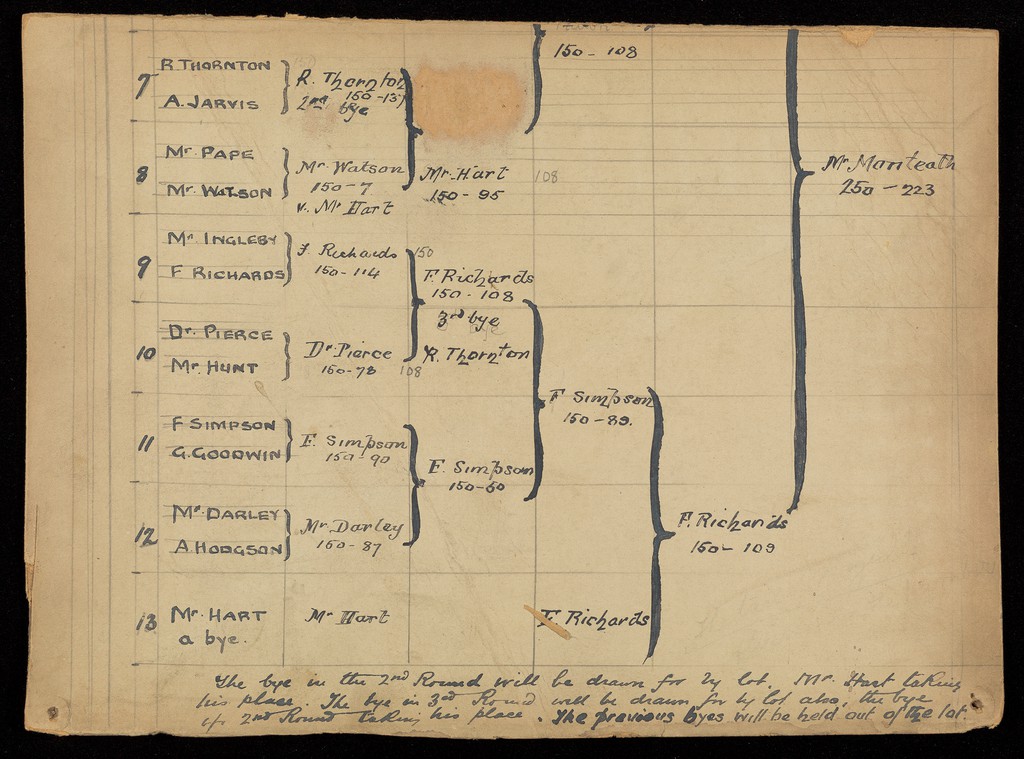 150 - 108
7
R. THORNTON
A. JARVIS
R. Thornton
150 - 137
2nd bye
8
Mr. PAPE
Mr. WATSON
Mr. Watson
150 - 7
v. Mr Hart
Mr. Hart
150 - 95
108
Mr. Monteath
250 - 223
9
Mr INGLEBY
F RICHARDS
F. Richards
150 - 114
150
F. Richards
150 - 108
3rd bye
R. Thornton
10
Dr. PIERCE
Mr. HUNT
Dr. Pierce
150 - 78
108
11
F SIMPSON
G. GOODWIN
F. Simpson
150 - 90
F. Simpson
150 - 60
F Simpson
150 - 89.
12
Mr DARLEY
A. HODGSON
Mr. Darley
150 - 87
F. Richards
150 - 109
13
Mr. HART
a bye.
Mr Hart
F. Richards
The bye in the 2nd Round will be drawn for by lot. Mr. Hart taking
his place. The bye in 3rd Round will be drawn for by lot also, the bye
in 2nd Round taking his place. The previous byes will be held out of the lot.